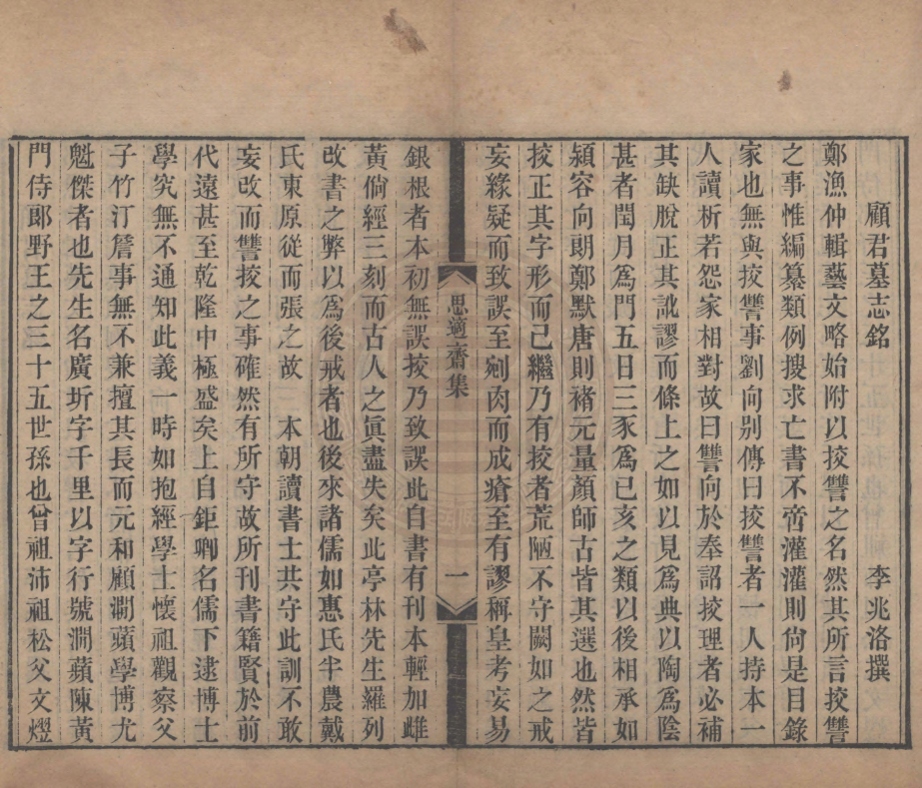 顧君墓志銘 李兆洛撰
鄭漁仲輯藝文略始附以挍讐之名然其所言挍讐
之事惟編纂類例搜求亡書不啻灌灌則尙是目錄
家也無與挍讐事劉向别傳曰挍讐者一人持本一
人讀析若怨家相對故曰讐向於奉詔挍理者必補
其缺脫正其訛謬而條上之如以見爲典以陶爲陰
甚者閏月爲門五日三豕爲已亥之類以後相承如
潁容向朗鄭默唐則褚元量顏師古皆其選也然皆
挍正其字形而已繼乃有挍者荒陋不守闕如之戒
妄緣疑而致誤至剜肉而成瘡至有謬稱皇考妄易
思適齋集 一
銀根者本初無誤挍乃致誤此自書有刊本輕加雌
黃倘經三刻而古人之眞盡失矣此亭林先生羅列
改書之弊以爲後戒者也後來諸儒如惠氏半農戴
氏東原從而張之故 本朝讀書士共守此訓不敢
妄改而讐挍之事確然有所守故所刊書籍賢於前
代遠甚至乾隆中極盛矣上自鉅卿名儒下逮博士
學究無不通知此義一時如抱經學士懷祖觀察父
子竹汀詹事無不兼擅其長而元和顧澗蘋學博尤
魁傑者也先生名廣圻字千里以字行號澗蘋陳黃
門侍郎野王之三十五世孫也曾祖沛祖松父文熠